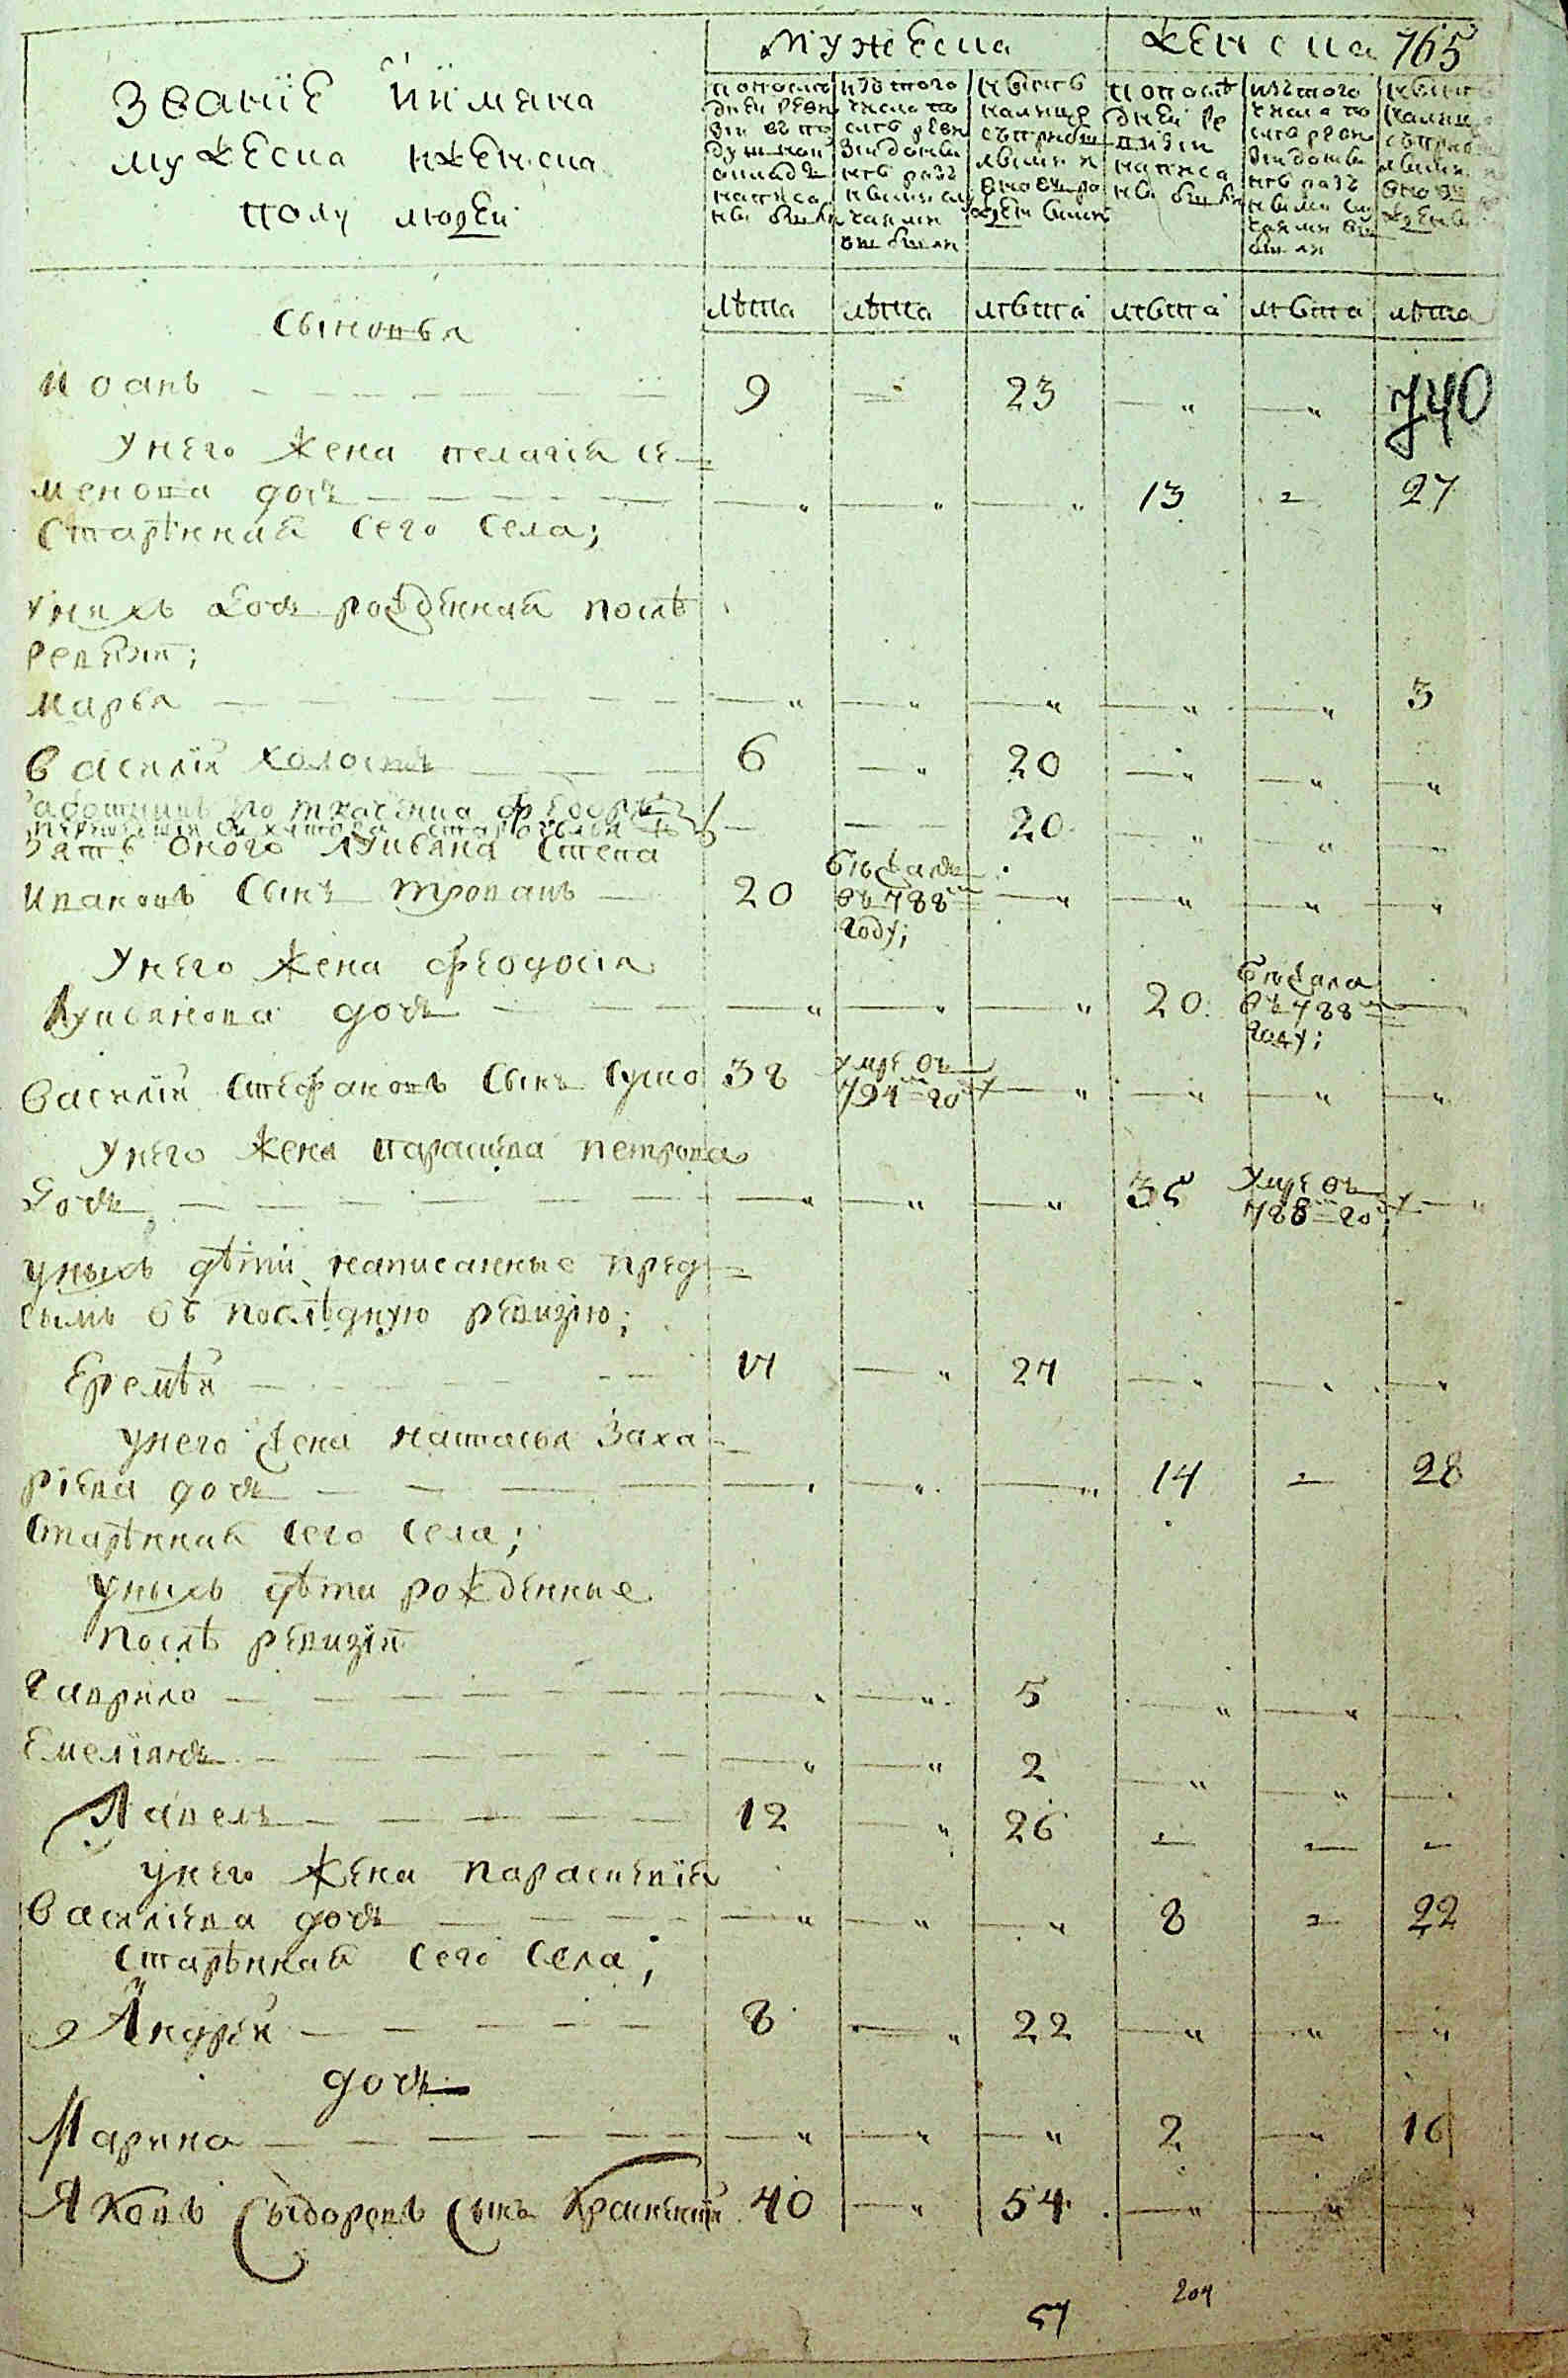 Званіе ӥимяна
мужеска иженска
полу людей
Мужеска
Женска 765
попосле
дней реви
зіи въ по
душной
окладъ
написа
ны были
изътого
числа по
слѣ реви
зіи
разъ
ными слу
чаями
выбыли
нынѣ
налице
съприбы
лыми и
вновь ро
жденными
попослѣ
дней ре
визіи
написа
ны были
изътого
числа по
слѣ реви
зіи
разъ
ными слу
чаями вы
были
нынѣ
налице
съприбы
лыми
вновь
лѣта лѣта лѣта лѣта лѣта лѣта
Сыновья
Иоанъ 9 — 23 — " — " 740
Унего жена пелагія Се=
менова дочь — " — " — " 13 = 27
Старѣнная сего села;
унихъ дочь рожденная послѣ
ревизіи;
Марья — " — " — " — " — " 3
Василій холостъ 6 — " 20 — " — " — "
— — 20 — " — " —
Зять оного Лукьяна Степа
Ивановъ Сынъ 20 бѣжалъ — " — " — " — "
въ 788м
году;
Унего жена Феодосія
Лукьянова дочь — " — " — " 20 бѣжала —
въ 788м
году;
Василій Стефановъ Сынъ Сушо 38 умре въ — " — " — " — "
794м году
Унего жена параскева петрова
Дочь — " — " — " 35 умре въ — "
788м году
уныхъ дѣти написанные пред=
симъ въ послѣдную ревизію;
Еремѣй — " 27 — " — " — "
унего жена настасья Заха=
ріева дочь — " — " — " 14 = 28
Старѣнная сего села;
уныхъ дѣти рожденные
послѣ ревизіи
Гаврило — " — " 5 — " — " —
Емеліянъ — " — " 2 — " — " —
Павелъ 12 — " 26 = = =
унего жена параскевія
Василіева дочь — " — " — " 8 = 22
Старѣнная сего села;
Андрей 8 — " 22 — " — " — "
дочь
Марина — " — " — " 2 — " 16
Яковъ Сыдоревъ Сынъ 40 — " 54 — " — " — "
57
204